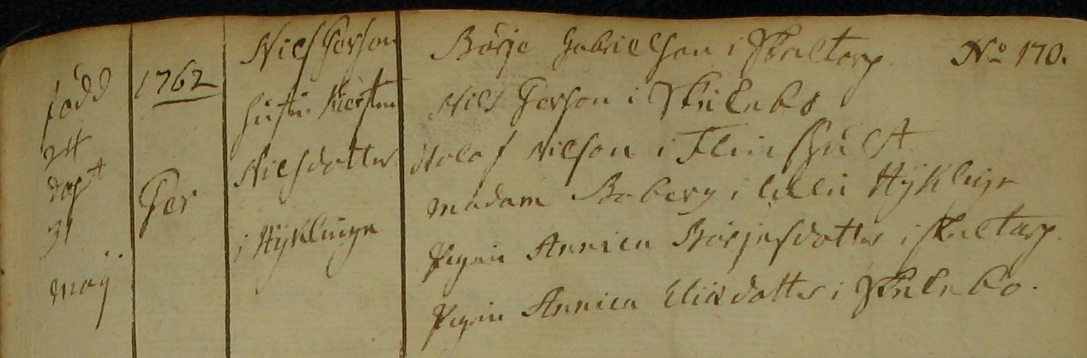 född
24
döpt
31
maij
1762
Per
Nils Person
hustru Kierstin
Nilsdotter
i Hyklinge
Börje Gabrielson i Skaltarp No 170.
Nils Person i Skilebo
Nolaf Nilson i Flinshult
madam Boberg i Lilla Hyklinge
Pigan Annica Börjesdotter i Skaltarp.
Pigan Annica Elisdotter i Skilebo.